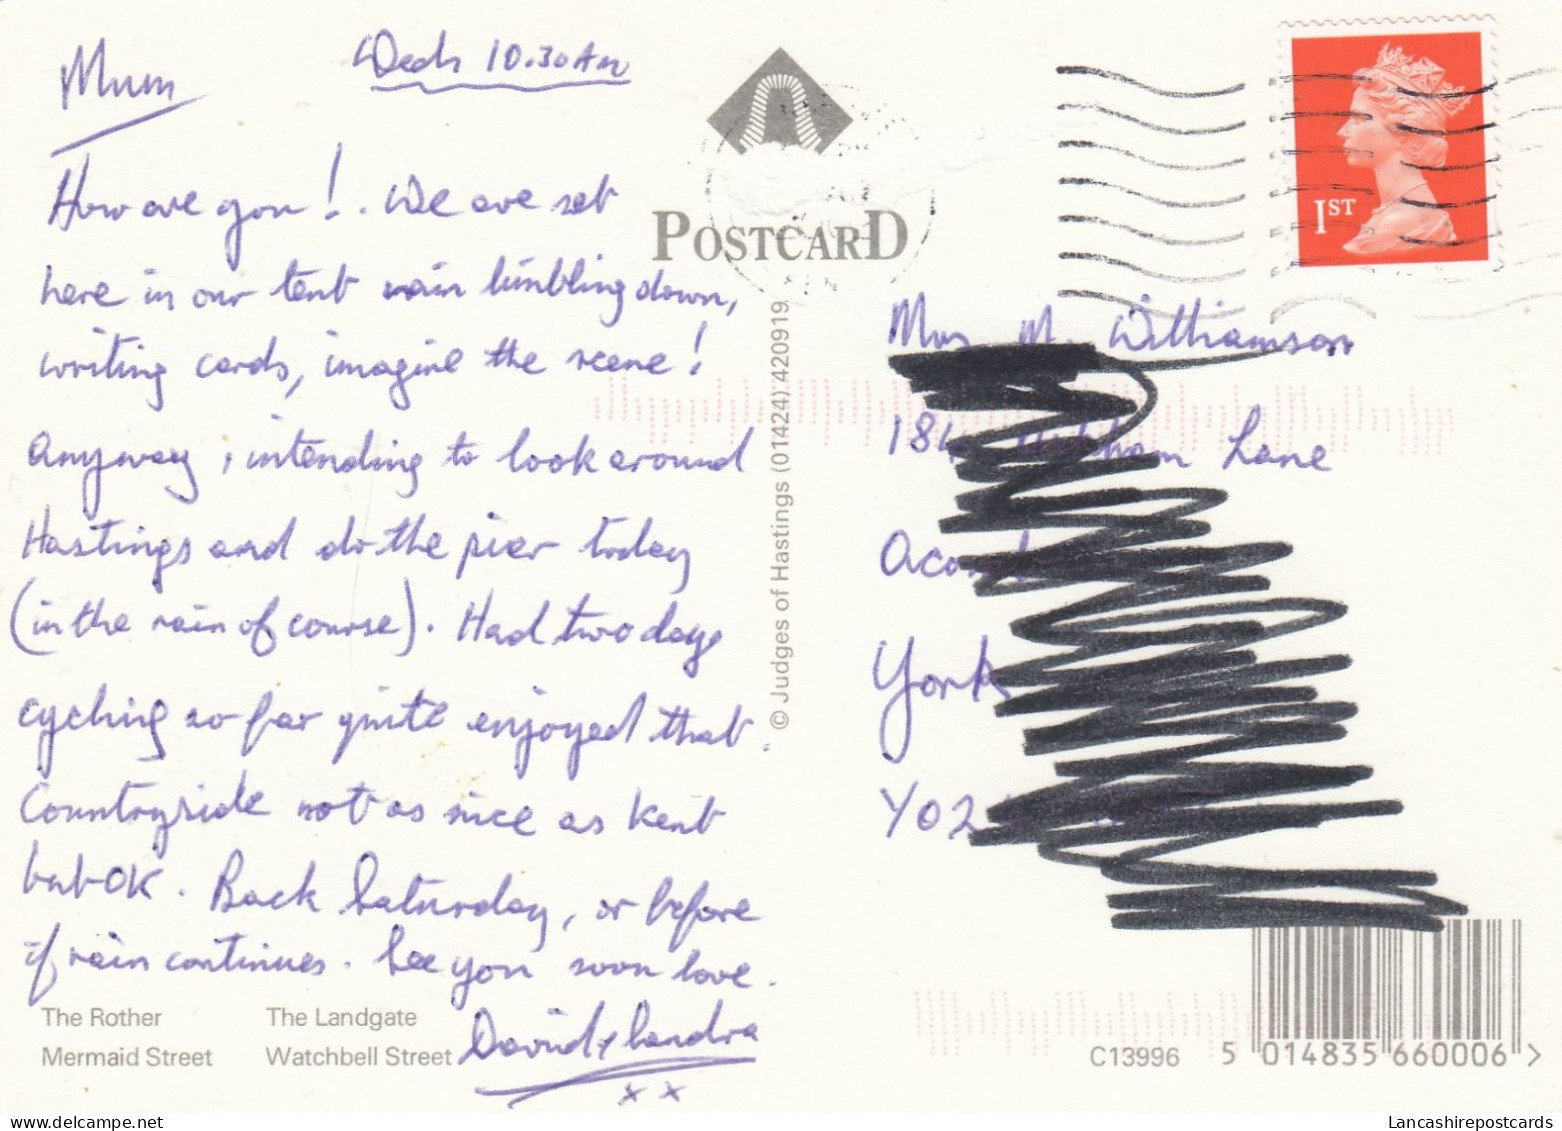 Mum
Weds 10.30AM
How are you! . We are sat
here in our tent rain timbling down,
writing cards, imagine the scene!
Anyway, intending to look around
Hastings and do the pier today
(in the rain of course). Had two days
cycling so far quite enjoyed that.
Countryside not as nice as Kent
but OK. Back Saturday, or before
if rain continues. See you soon love.
David & Sandra
x x
POSTCARD
© Judges of Hastings (01424) 420919
1ST
Mrs M. Williamson
Lane
York
YO2
The Rother
Mermaid Street
The Landgate
Watchbell Street
C13996
5 014835 660006 >
Lancashirepostcards